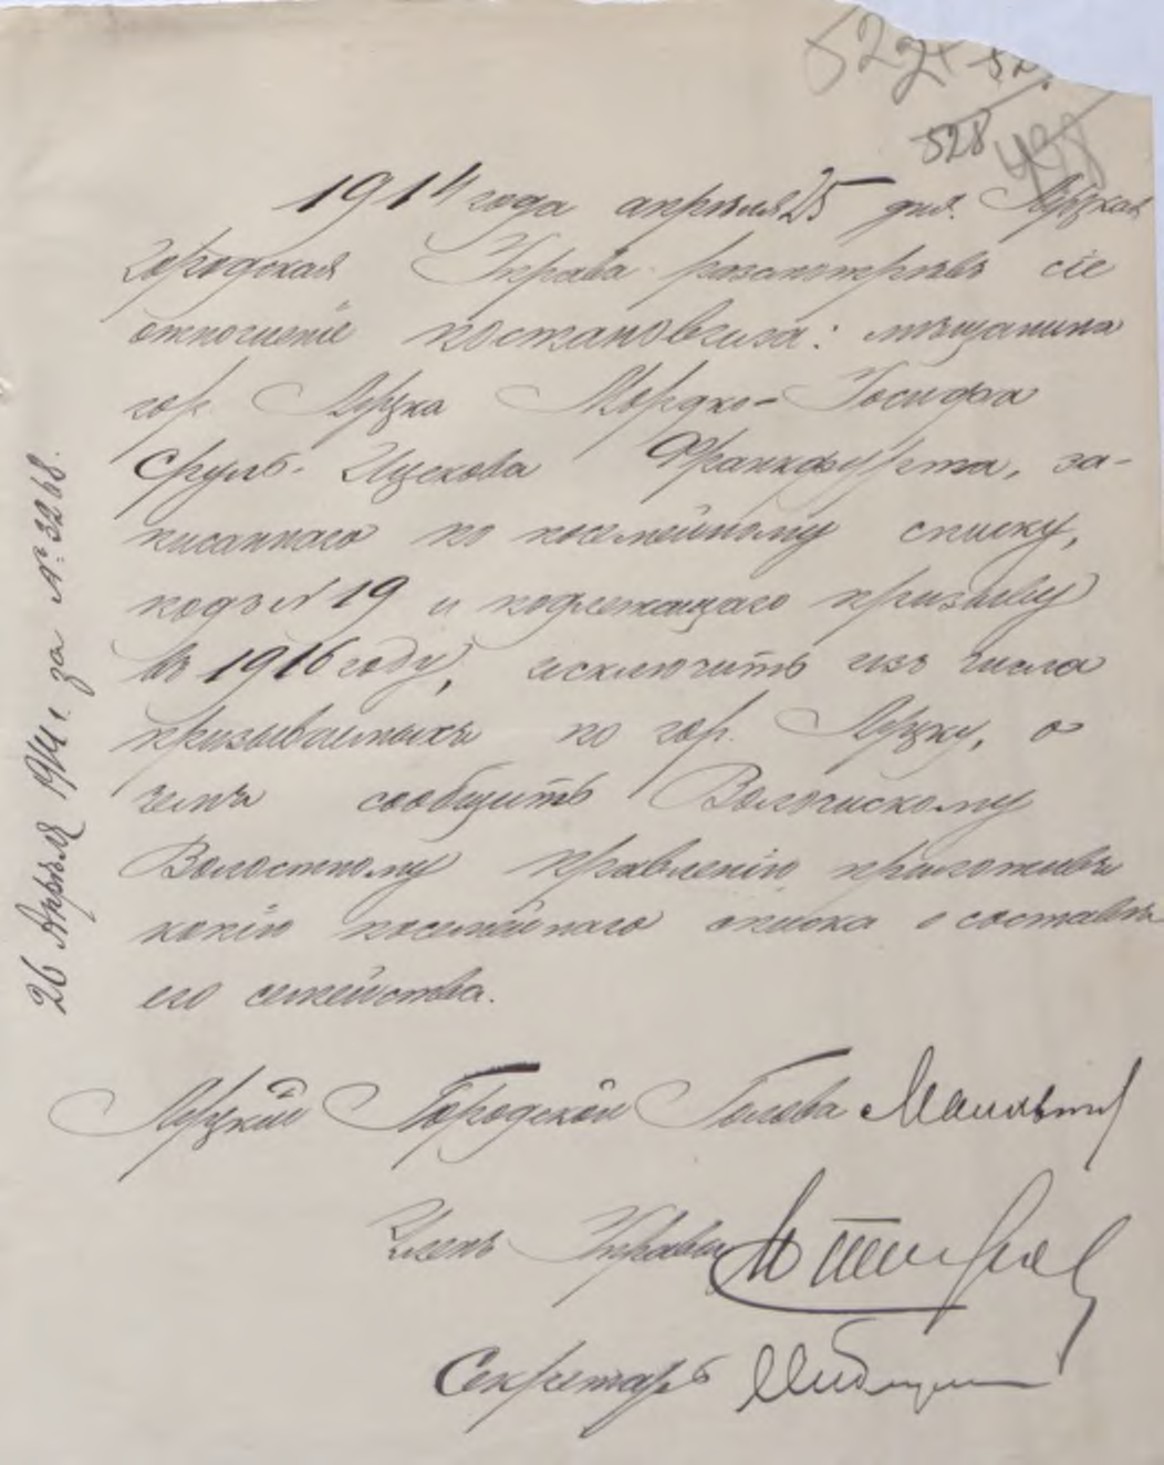 522
528
498
1914 года апрѣля 25 дня. Луцкая
Городская Управа разсмотрѣвъ сіе
отношеніе постановила: мѣщанина
гор. Луцка Мордко-Іосифа
Сруль-Ицкова Франкфурта, за-
писаннаго по посемейному списку,
подъ N 19 и подлежащаго призыву
въ 1916 году, исключить изъ числа
призываемыхъ по гор. Луцку, о
чемъ сообщить Волочискому
Волостному Правленію приготовивъ
копію посемейнаго списка о составѣ
его семейства.
Луцкій Городской Голова
Членъ Управы
Секретарь
26 Апрѣля 1914 г. за № 3268.